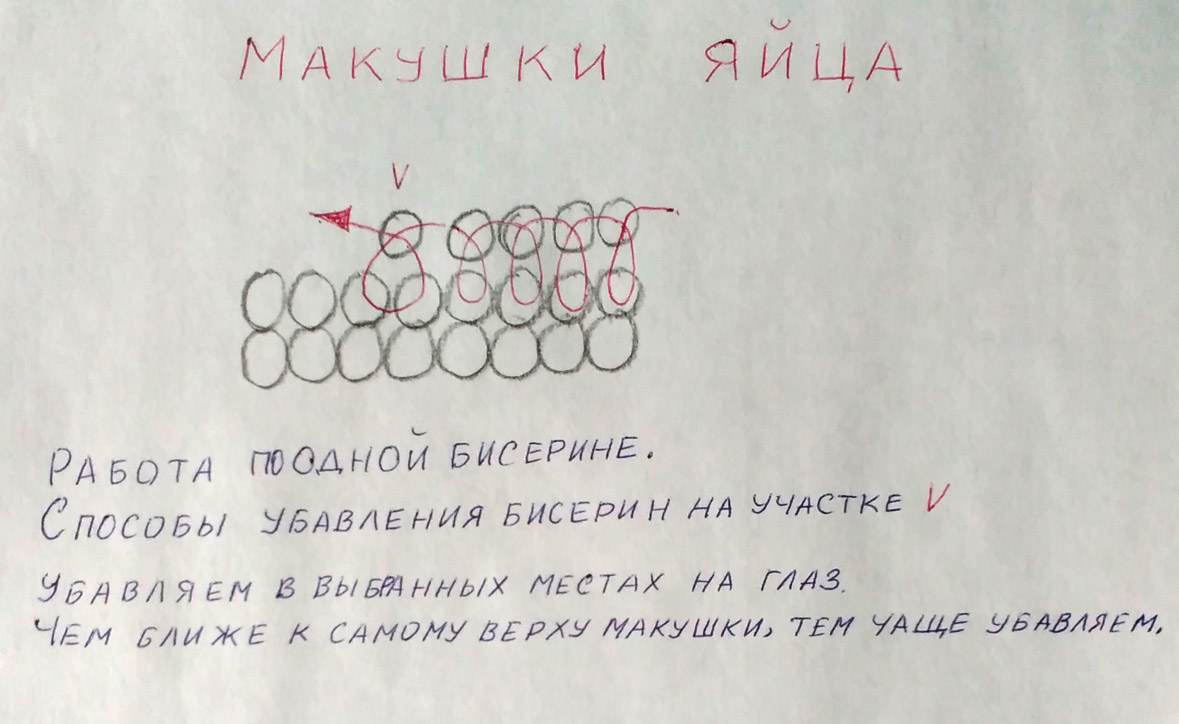 МАКУШКИ ЯЙЦА
V
РАБОТА ПО ОДНОЙ БИСЕРИНЕ.
СПОСОБЫ УБАВЛЕНИЯ БИСЕРИН НА УЧАСТКЕ V
УБАВЛЯЕМ В ВЫБРАННЫХ МЕСТАХ НА ГЛАЗ.
ЧЕМ БЛИЖЕ К САМОМУ ВЕРХУ МАКУШКИ, ТЕМ ЧАЩЕ УБАВЛЯЕМ.